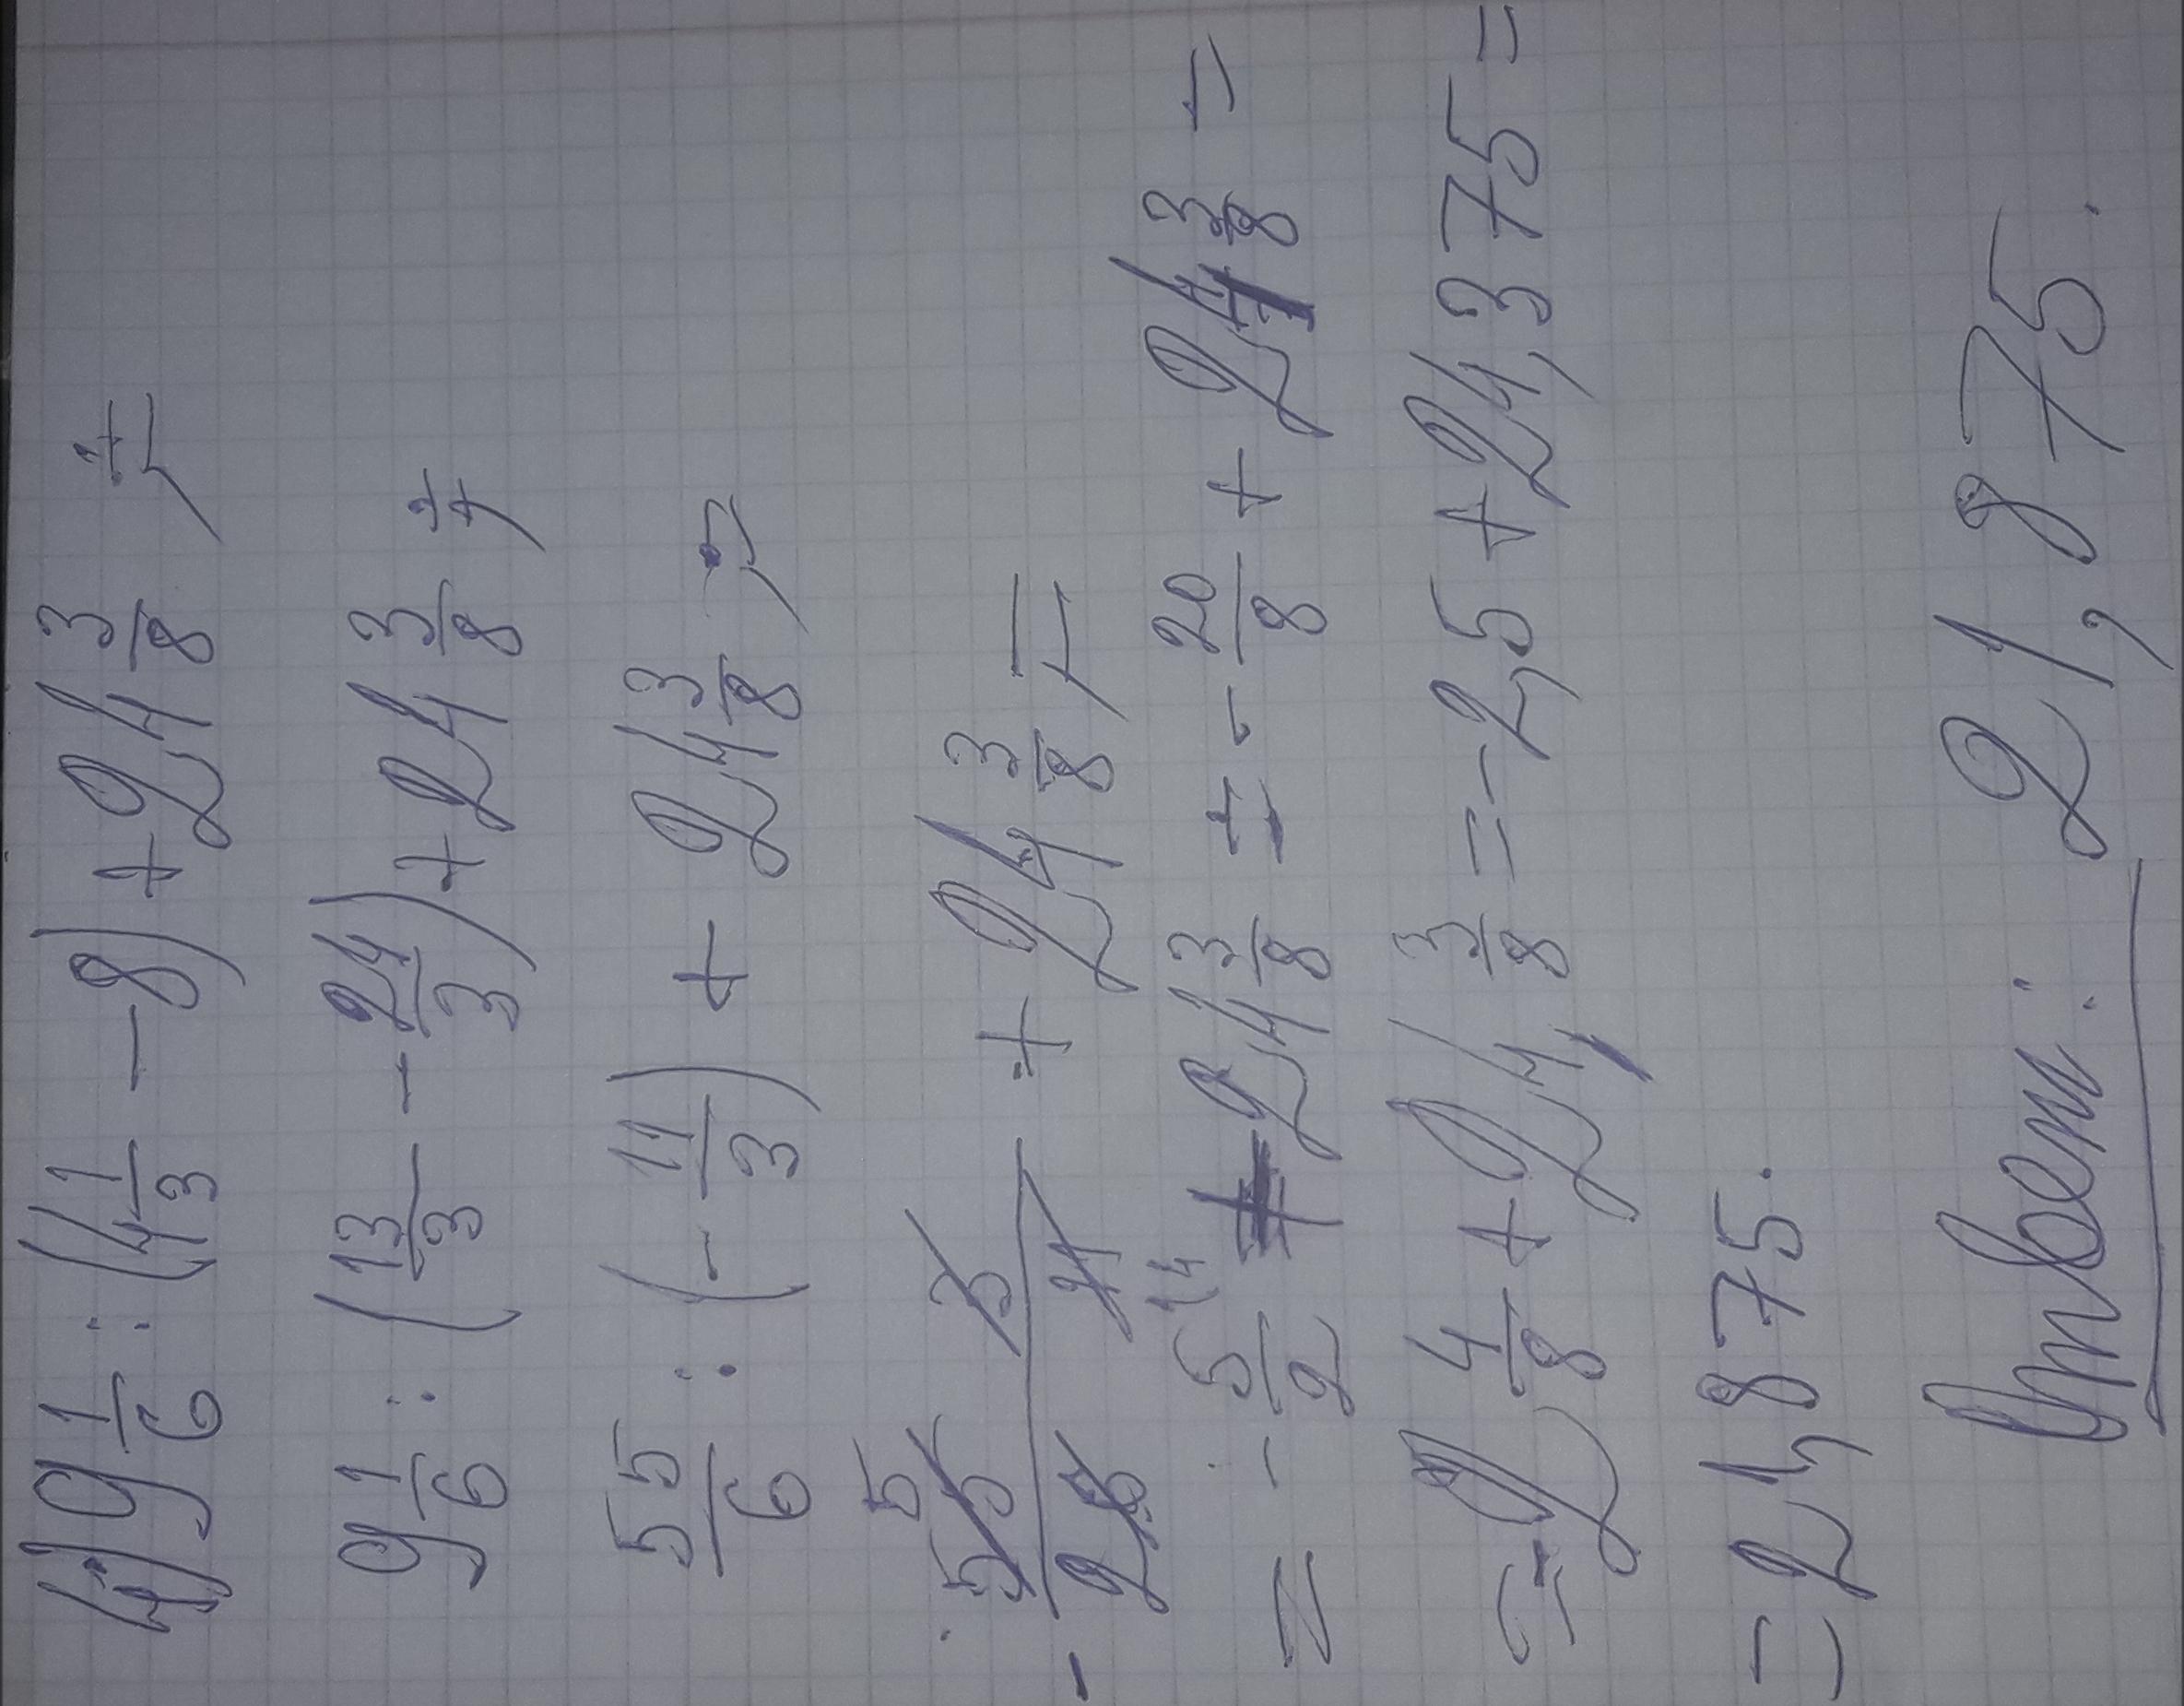 4) 9 1/6 : (4 1/3 - 8) + 24 3/8 =
9 1/6 : (13/3 - 24/3) + 24 3/8 =
55/6 : (- 11/3) + 24 3/8 =
- 55 5 3 / 2 6 11 + 24 3/8 =
= - 5/2 14 + 24 3/8 = - 20/8 + 24 3/8 =
= 2 4/8 + 24, 3/8 = - 2,5 + 24,375 =
= 21,875.
Ответ: 21,875.